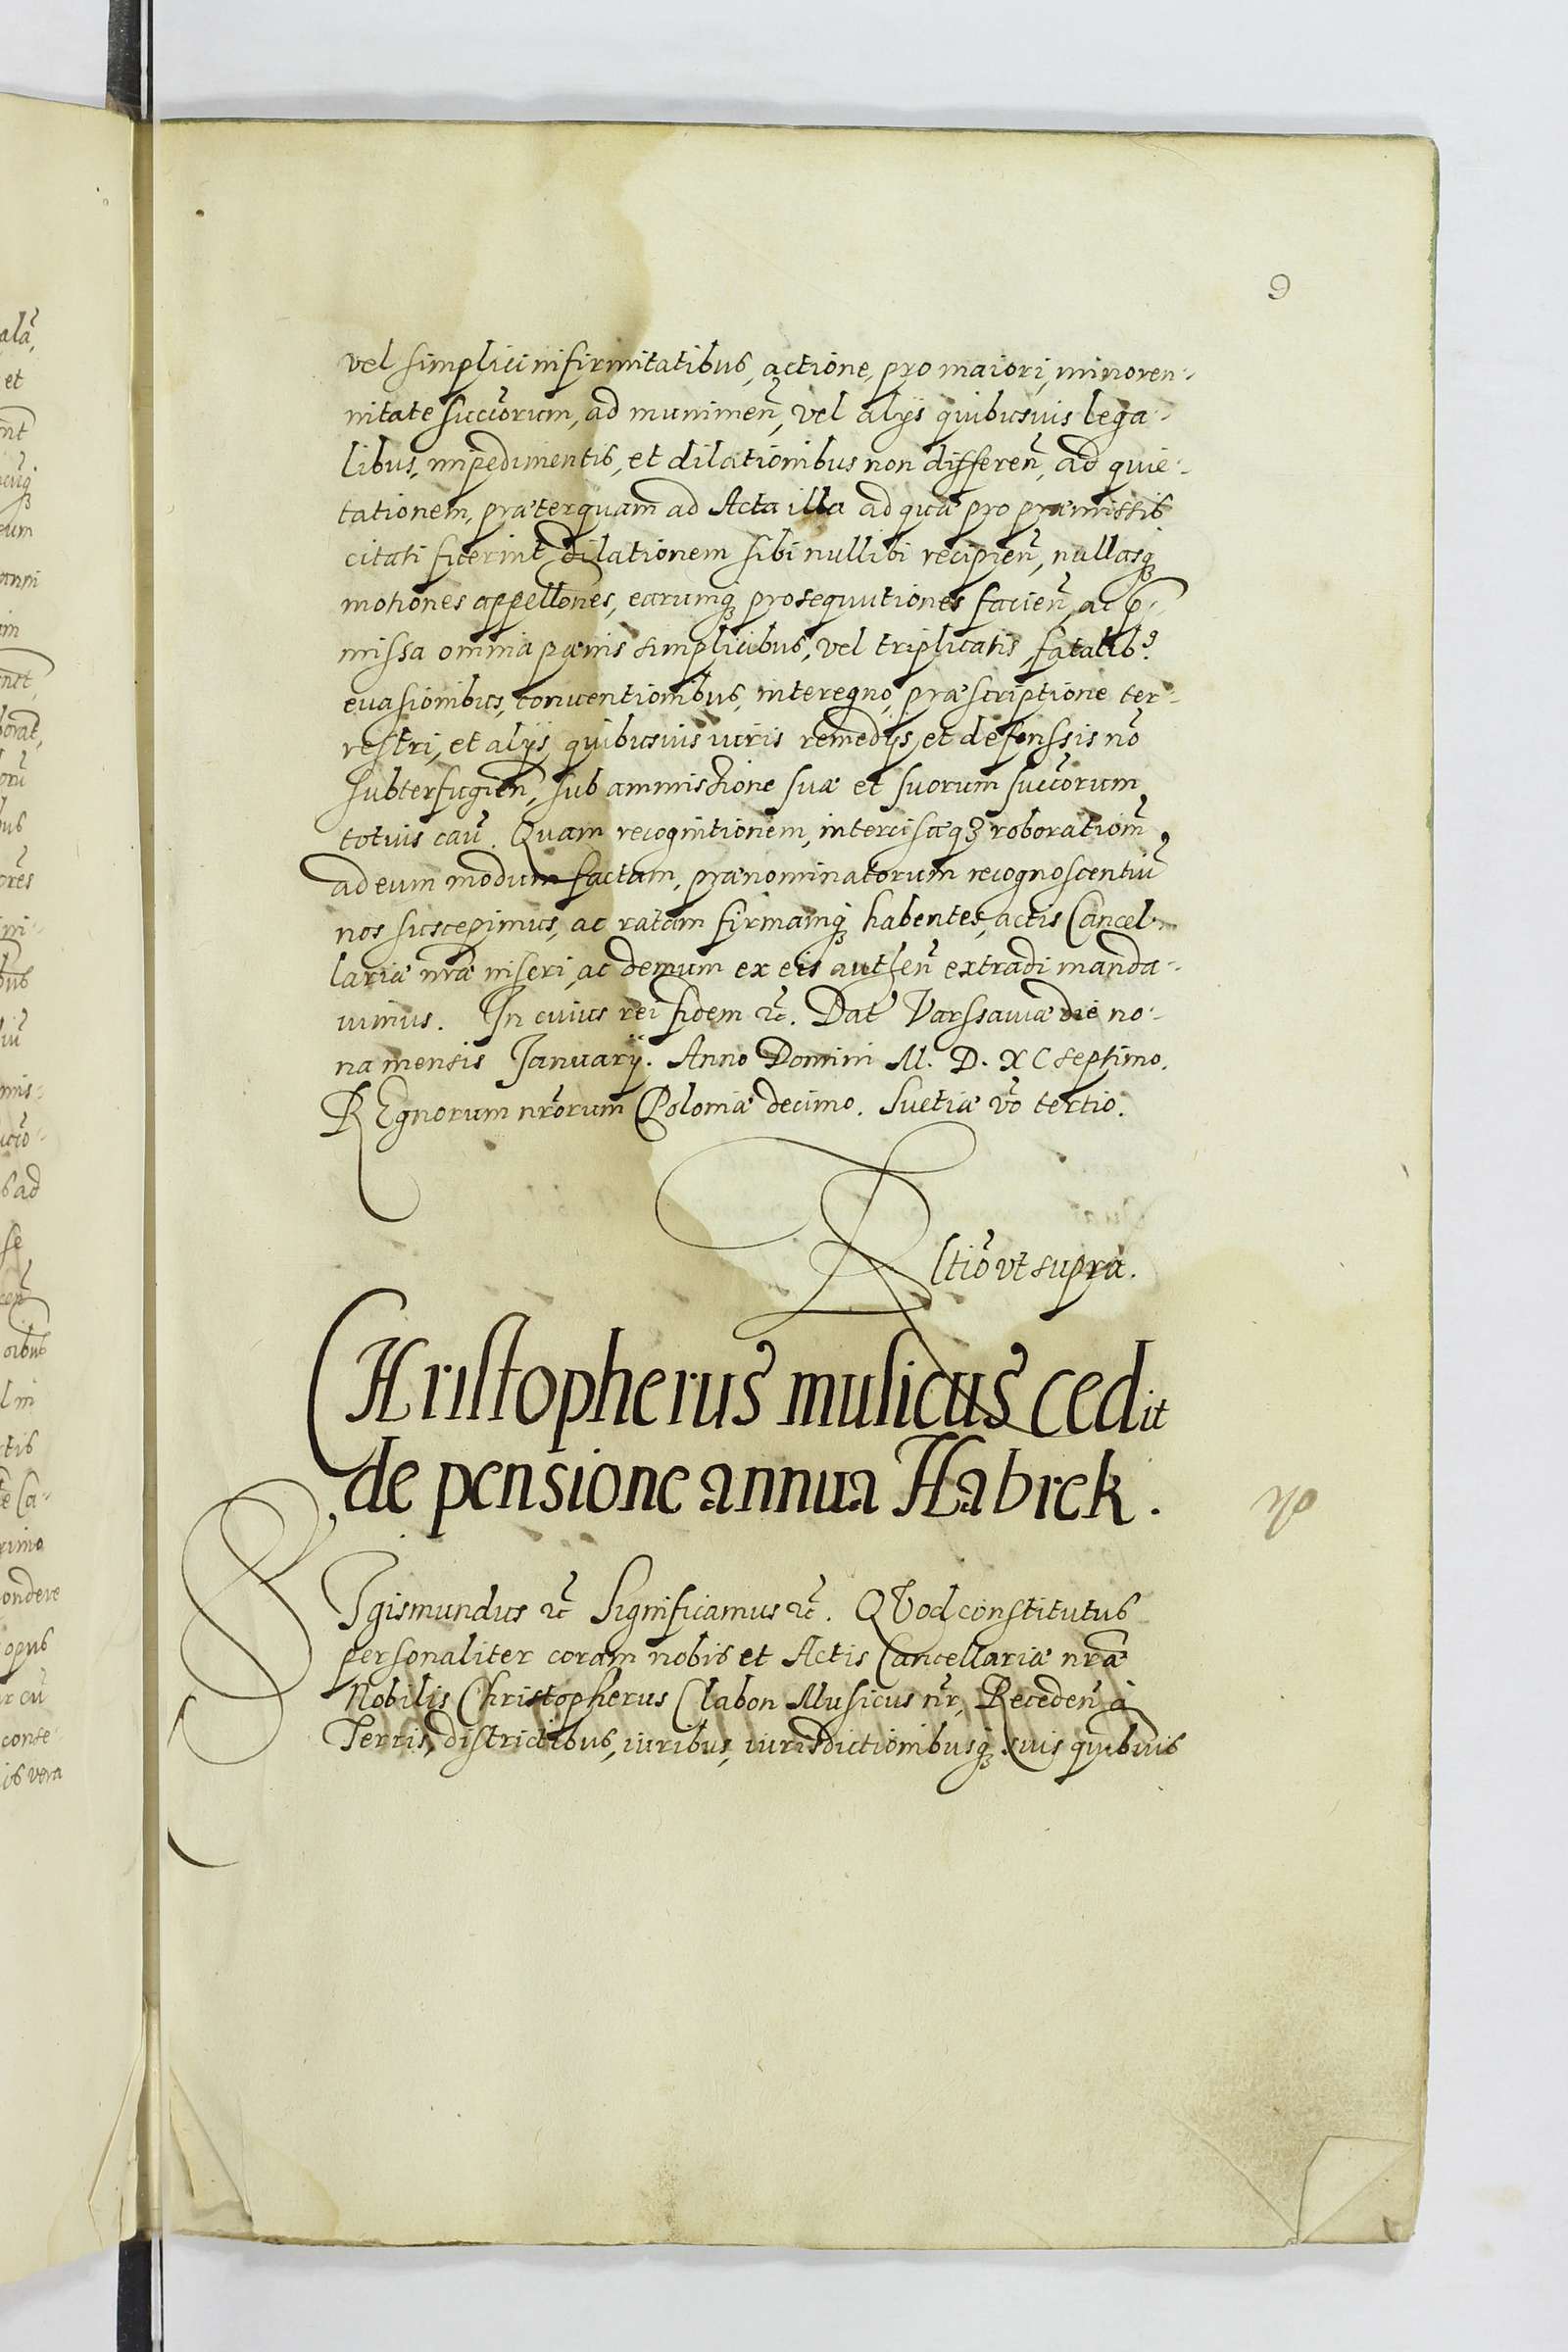 9
vel simplici infirmitatibus, actione, pro maiori, minoren-
nitate succorum, ad munimeñ, vel alijs quibusuis lega-
libus, impedimentis, et dilationibus non differeñ, ad quie-
tationem, præterquam ad Acta illa ad quæ pro præmissis
citati fuerint dilationem sibi nullibi recipieñ, nullasq́
motiones appellões, earumq́ prosequutiones facieñ, ac p-
missa omnia pœnis simplicibus, vel triplicatis, fatalib9
euasionibus, conuentionibus, interegno, præscriptione ter-
restri, et alijs quibusuis iuris remedijs, et defenssis nõ
subterfugieñ, sub ammissione suæ et suorum succorum
totius cau͂. Quam recognitionem, intercisæqȝ roborationẽ
ad eum modum factam, prænominatorum recognoscentiũ
nos suscepimus, ac ratam firmamq́ habentes, actis Cancel-
lariæ nr̃æ inseri, ac demum ex eis autheñ extradi manda-
uimus. In cuius rei fidem ꝛc̃. Dat̃ Varssauiæ die no-
na mensis Januarij. Anno Domini M. D. XC septimo.
REgnorum nr̃orum Poloniæ decimo. Suetiæ võ tertio.
Rltiõ vt supra.
CHristopherus musicus cedit
de pensione annua Habrek.
SIgismundus ꝛc̃ Significamus ꝛc̃. QVod constitutus
personaliter coram nobis et Actis Cancellariæ nr̃æ
Nobilis Christopherus Clabon Musicus nr̃, Recedeñ à
Terris, districtibus, iuribus, iurisdictionibusq́ suis quibuuis